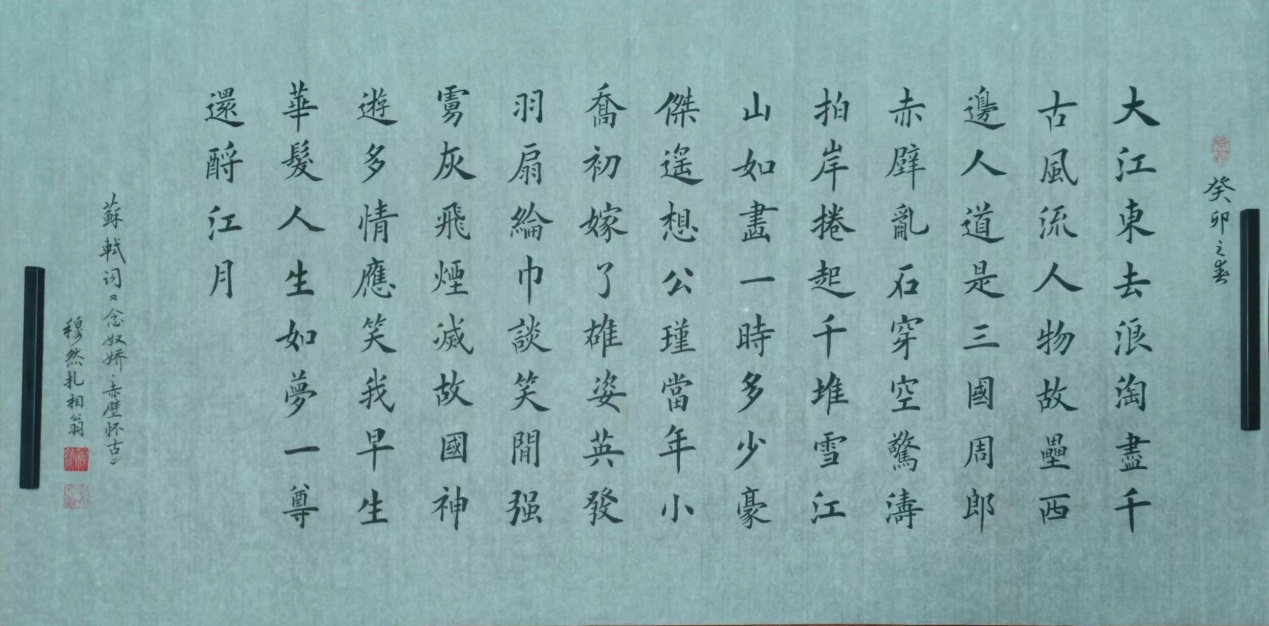 癸卯之春
大江東去浪淘盡千
古風流人物故壘西
邊人道是三國周郎
赤壁亂石穿空驚濤
拍岸捲起千堆雪江
山如畫一時多少豪
傑遙想公瑾當年小
喬初嫁了雄姿英發
羽扇綸巾談笑閒强
雩灰飛煙滅故國神
遊多情應笑我早生
華髮人生如夢一尊
還酹江月
蘇軾词《念奴娇·赤壁怀古》
穆然扎相翁